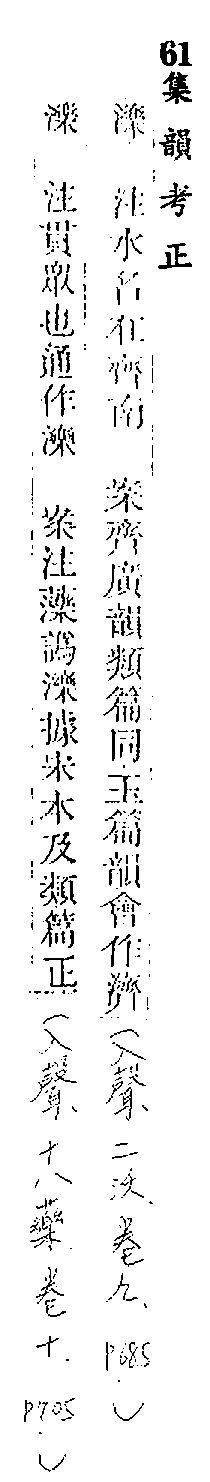 61集韻考正
濼 注水名在齊南 案齊廣韻類篇同玉篇韻會作濟(入聲、二沃、卷九、P685.)
濼 注貫眾也通作濼 案注藥譌濼據宋本及類篇正(入聲、十八藥.卷十.P705.)